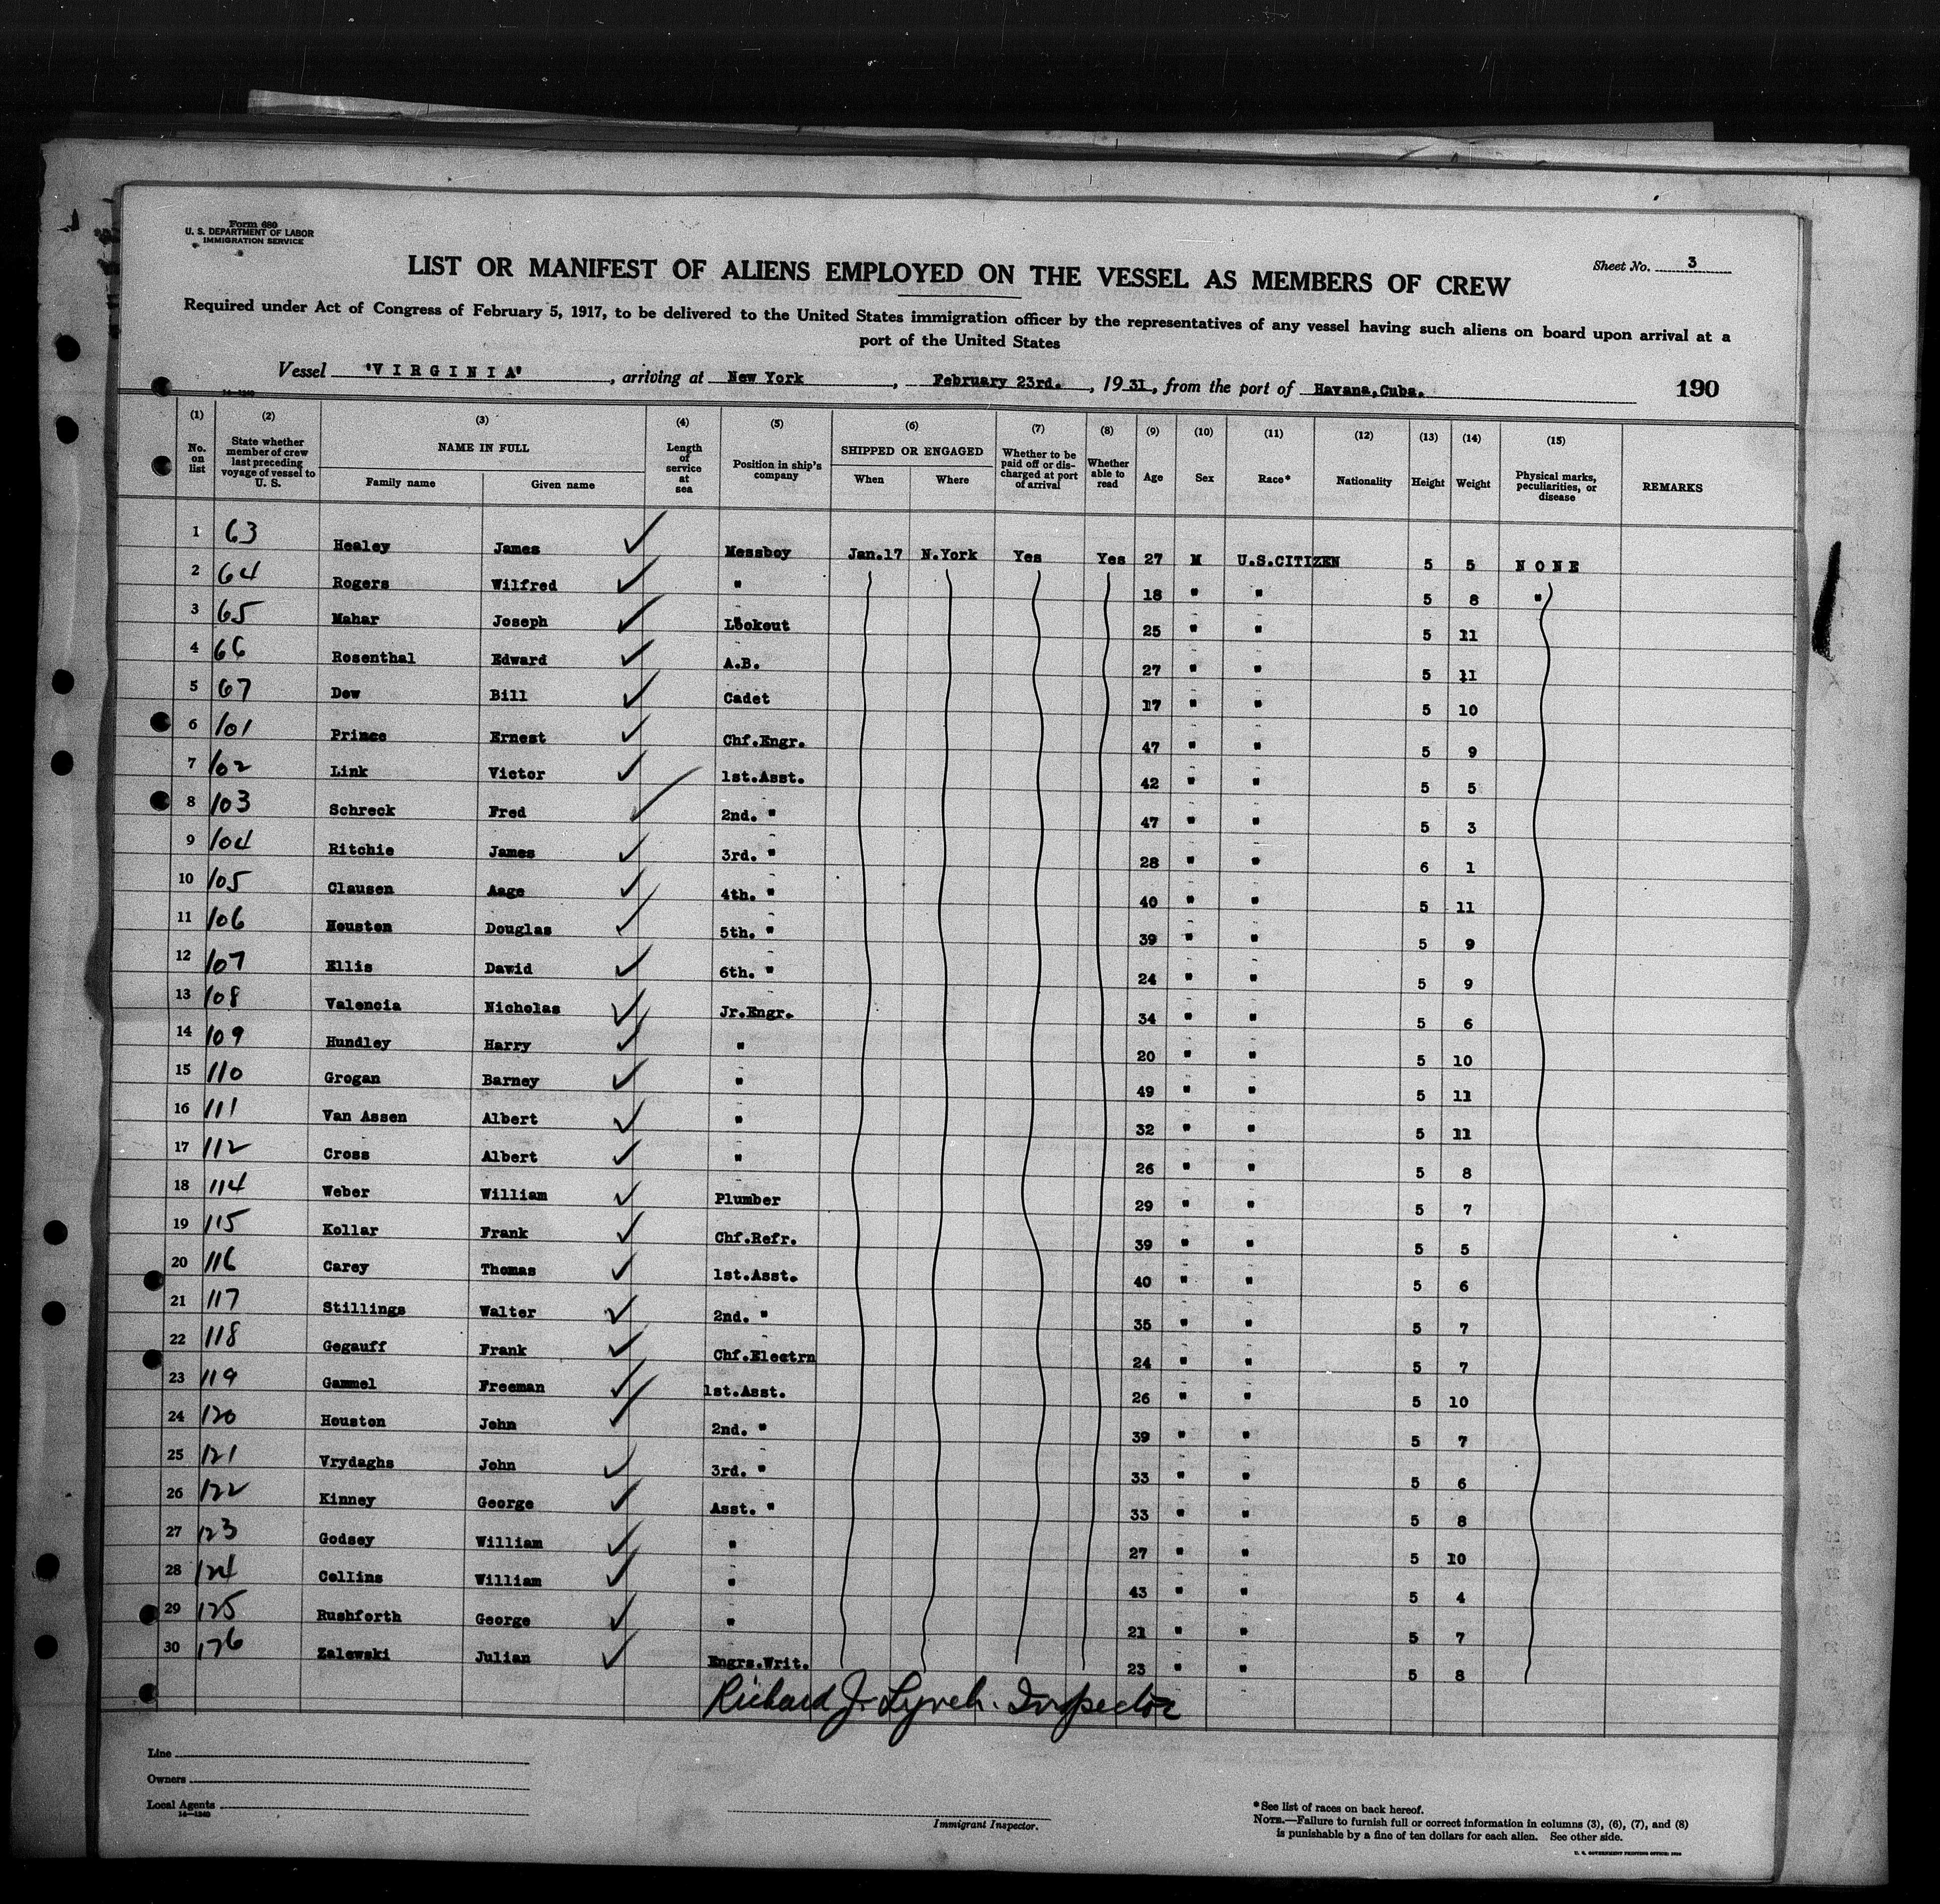 Form 680
U. S. DEPARTMENT OF LABOR
IMMIGRATION SERVICE
Sheet No. 3
LIST OR MANIFEST OF ALIENS EMPLOYED ON THE VESSEL AS MEMBERS OF CREW
Required under Act of Congress of February 5, 1917, to be delivered to the United States immigration officer by the representatives of any vessel having such aliens on board upon arrival at a
port of the United States
Vessel "VIRGINIA", arriving at New York, February 23rd., 1931, from the port of Havana,Cuba. 190
14—1240
(1) (2) (3) (4) (5) (6) (7) (8) (9) (10) (11) (12) (13) (14) (15)
No. on list State whether member of crew last preceding voyage of vessel to U. S. NAME IN FULL Family name Given name Length of service at sea Position in ship's company SHIPPED OR ENGAGED When Where Whether to be paid off or discharged at port of arrival Whether able to read Age Sex Race* Nationality Height Weight Physical marks, peculiarities, or disease REMARKS
1 63 Healey James ✓ Messboy Jan.17 N.York Yes Yes 27 M U.S.CITIZEN 5 5 NONE
2 64 Rogers Wilfred ✓ " 18 " " 5 8 "
3 65 Mahar Joseph ✓ Lookout 25 " " 5 11
4 66 Rosenthal Edward ✓ A.B. 27 " " 5 11
5 67 Dow Bill ✓ Cadet 17 " " 5 10
6 101 Prince Ernest ✓ Chf.Engr. 47 " " 5 9
7 102 Link Victor ✓ 1st.Asst. 42 " " 5 5
8 103 Schreck Fred ✓ 2nd. " 47 " " 5 3
9 104 Ritchie James ✓ 3rd. " 28 " " 6 1
10 105 Clausen Aage ✓ 4th. " 40 " " 5 11
11 106 Houston Douglas ✓ 5th. " 39 " " 5 9
12 107 Ellis Dawid ✓ 6th. " 24 " " 5 9
13 108 Valencia Nicholas ✓ Jr.Engr. 34 " " 5 6
14 109 Hundley Harry ✓ " 20 " " 5 10
15 110 Grogan Barney ✓ " 49 " " 5 11
16 111 Van Assen Albert ✓ " 32 " " 5 11
17 112 Cross Albert ✓ " 26 " " 5 8
18 114 Weber William ✓ Plumber 29 " " 5 7
19 115 Kollar Frank ✓ Chf.Refr. 39 " " 5 5
20 116 Carey Thomas ✓ 1st.Asst. 40 " " 5 6
21 117 Stillings Walter ✓ 2nd. " 35 " " 5 7
22 118 Gegauff Frank ✓ Chf.Electrn 24 " " 5 7
23 119 Gammel Freeman ✓ 1st.Asst. 26 " " 5 10
24 120 Houston John ✓ 2nd. " 39 " " 5 7
25 121 Vrydaghs John ✓ 3rd. " 33 " " 5 6
26 122 Kinney George ✓ Asst. " 33 " " 5 8
27 123 Godsey William ✓ " 27 " " 5 10
28 124 Collins William ✓ " 43 " " 5 4
29 125 Rushforth George ✓ " 21 " " 5 7
30 126 Zalewski Julian ✓ Engrs.Writ. 23 " " 5 8
Richard J. Lynch. Inspector
Line
Owners
Local Agents
14—1240
Immigrant Inspector.
*See list of races on back hereof.
NOTE.—Failure to furnish full or correct information in columns (3), (6), (7), and (8)
is punishable by a fine of ten dollars for each alien. See other side.